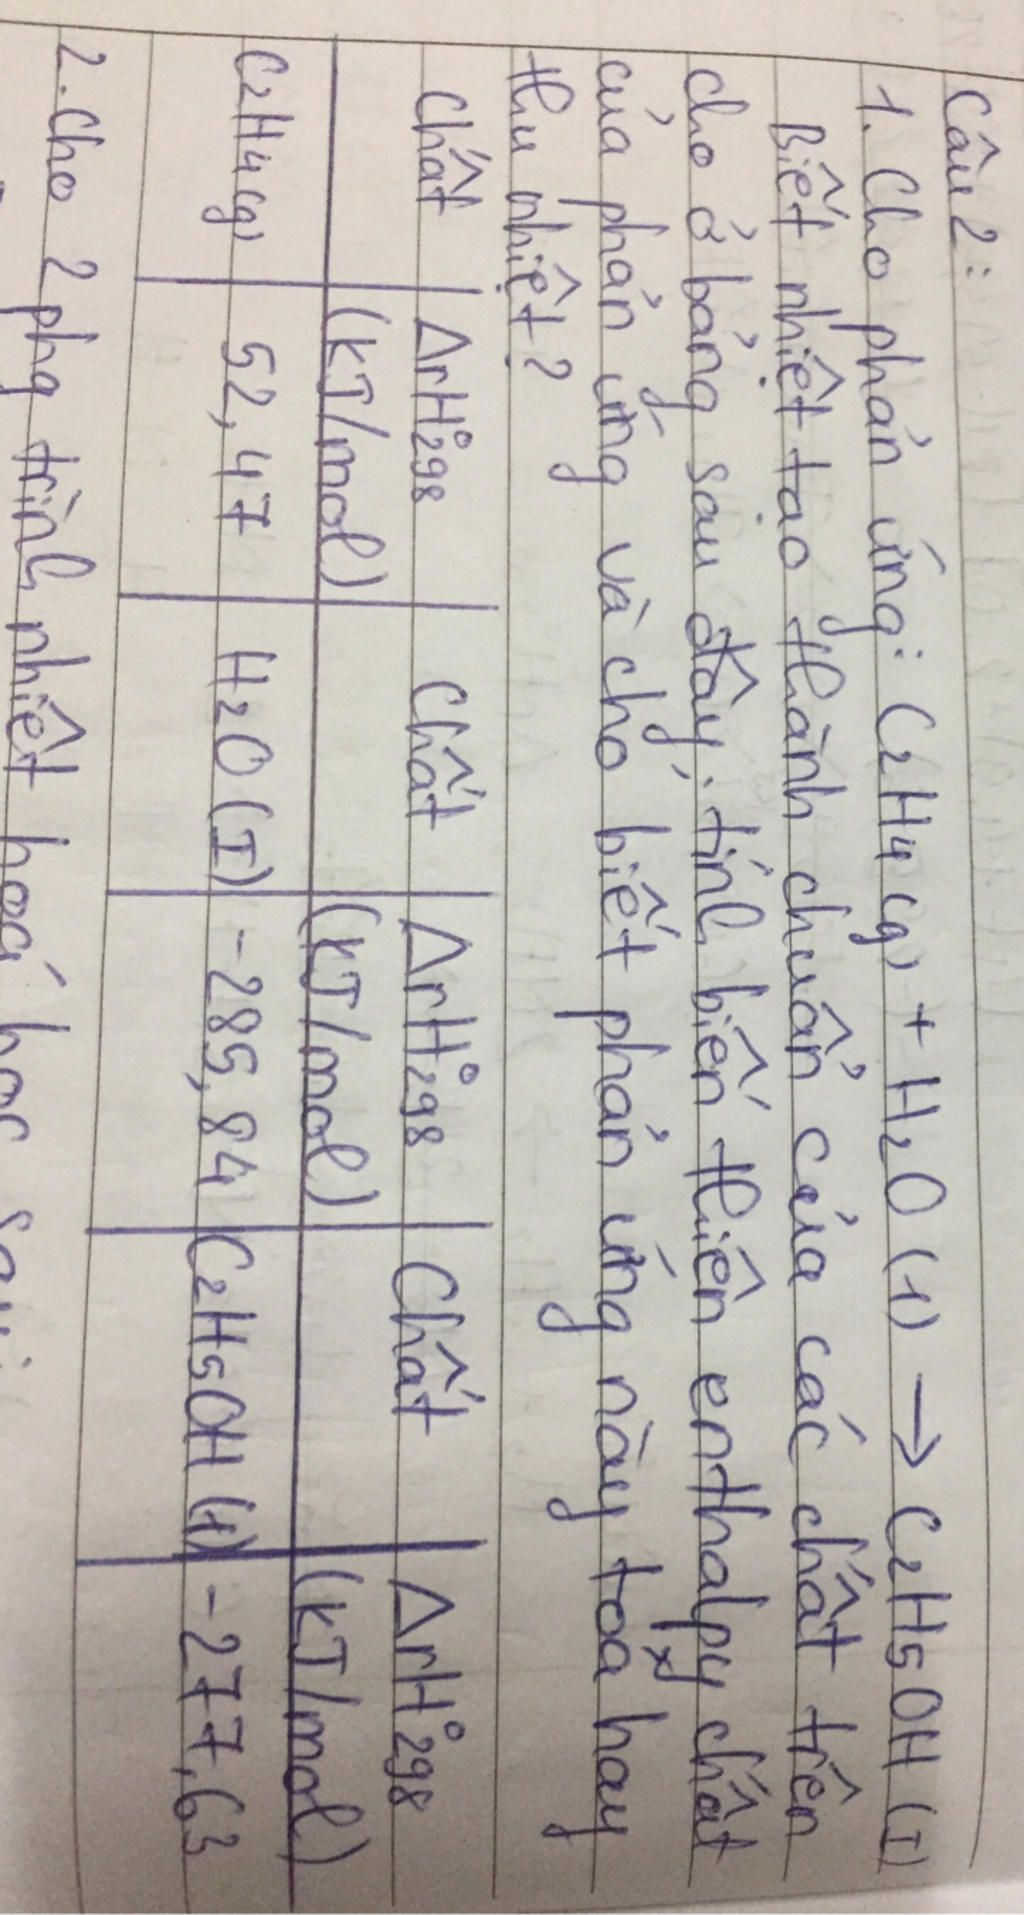 Câu 2:
1. Cho phản ứng: C₂H₄ (g) + H₂O (l) → C₂H₅OH (I)
Biết nhiệt tạo thành chuẩn của các chất trên
cho ở bảng sau đây; tính biến thiên enthalpy chất
của phản ứng và cho biết phản ứng này toả hay
thu nhiệt?
Chất ΔrH°298 Chất ΔrH°298 Chất ΔrH°298
(kJ/mol) (kJ/mol) (kJ/mol)
C₂H₄ (g) 52,47 H₂O (I) -285,84 C₂H₅OH (l) -277,63
2. Cho 2 phg trình nhiệt hoá học sau: